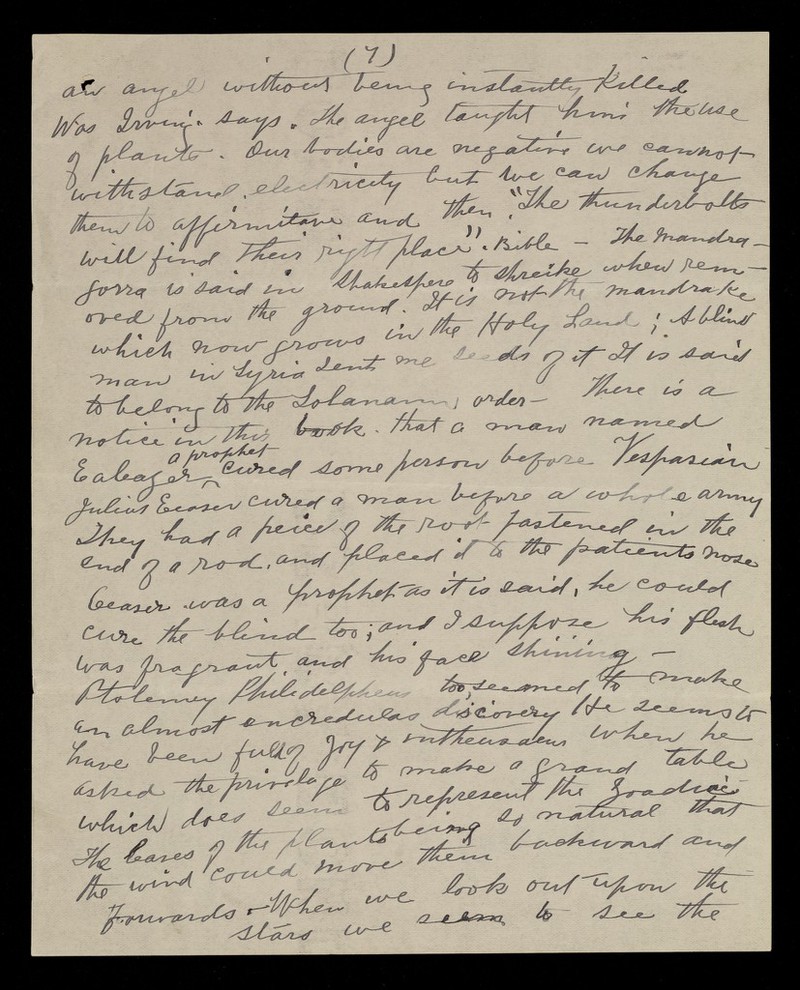 (7)
an angel without being instantly killed
Was Irving. says. The angel taught him the use
of plants. Our bodies are negative we cannot
withstand electricity but we can change
them to affirmitave and then "The thunderbolts
will find their right place". Bible - The Mandra-
gorra is said in Shakespere to shreike when rem-
oved from the ground. It is not the mandrake
which now grows in the Holy Land; A blind
man in Syria sent me seeds of it It is said
to belong to the Solanann order - There is a
notice in this book. that a man named
a prophet
Ealeazer cured some person before Vespasian
Julius Ceaser cured a man before a whole army
They had a peice of the root fastened in the
end of a rod. and placed it to the patients nose
Ceaser was a prophet as it is said, he could
cure the blind too; and I suppose his flesh
was fragrant and his face shining -
Ptolemey Philidelpheus too, seemed to make
an almost encredulas discovery He seems to
have been full of Joy & entheusaem when he
asked the privelage to make a grand table
which does seem to represent the Zoadiac
The leaves of the plants being so natural that
the wind could move them backward and
Forwards. When we look out upon the
stars we seem to see the